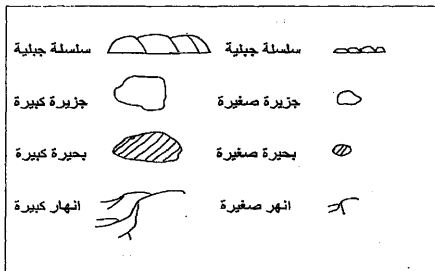 سلسلة جبلية سلسلة جبلية
جزيرة صغيرة جزيرة كبيرة
بحيرة صغيرة بحيرة كبيرة
انهر صغيرة انهار كبيرة